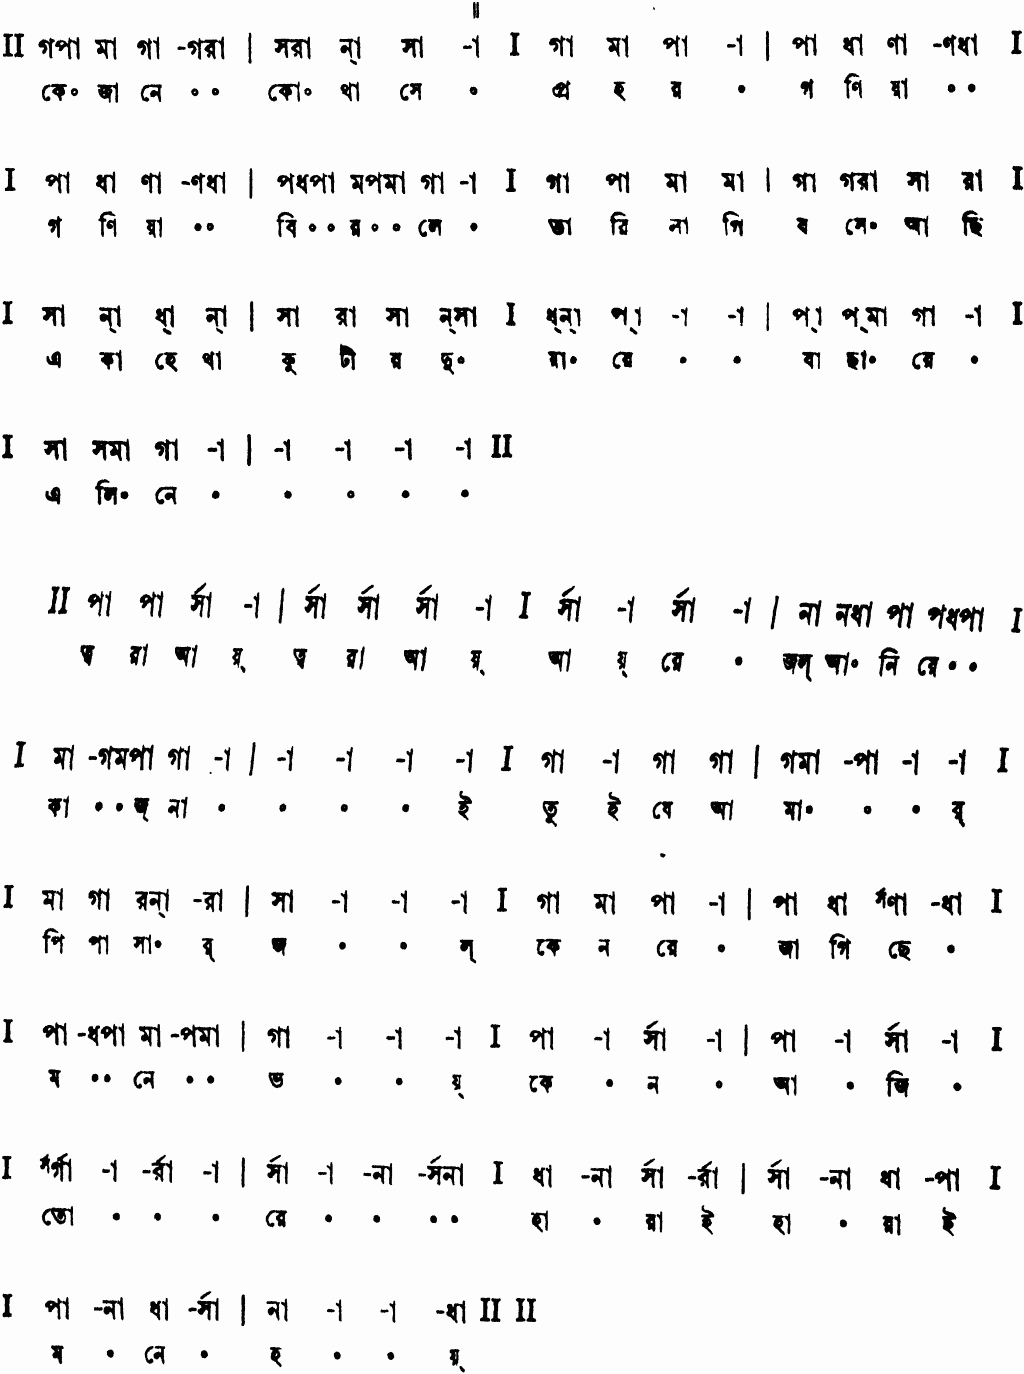 ॥
II গপা মা গা -গরা | সরা ন্‌া সা -া I গা মা পা -া | পা ধা ণা -ণধা I
কে॰ জা নে ॰ ॰ কো॰ থা সে ॰ প্র হ র • গ ণি য়া • •
I পা ধা ণা -ণধা | পধপা মপমা গা -া I গা পা মা মা | গা গরা সা রা I
গ ণি য়া •• বি॰॰ র॰॰ লে • তা রি লা গি ব সে• আ ছি
I সা ন্‌া ধ্‌া ন্‌া | সা রা সা ন্‌সা I ধ্‌ন্‌া প্‌া -া -া | প্‌া প্‌মা গা -া I
এ কা হে থা কু টী র দু• য়া• রে • • বা ছা• রে •
I সা সমা গা -া | -া -া -া -া II
এ লি• নে • • ॰ • •
II পা পা র্সা -া | র্সা র্সা র্সা -া I র্সা -া র্সা -া | না নধা পা পধপা I
ত্ব রা আ য়্ ত্ব রা আ য়্ আ য়্ রে • জল্ আ• নি রে••
I মা -গমপা গা -া | -া -া -া -া I গা -া গা গা | গমা -পা -া -া I
কা ••জ্ না • • • • ই তু ই যে আ মা• • • র্
I মা গা রন্‌া -রা | সা -া -া -া I গা মা পা -া | পা ধা র্সণা -ধা I
পি পা সা• র্ জ • • ল্ কে ন রে • জা গি ছে •
I পা -ধপা মা -পমা | গা -া -া -া I পা -া র্সা -া | পা -া র্সা -া I
ম •• নে • • ভ • • য়্ কে • ন • আ • জি •
I র্সর্গা -া -র্রা -া | র্সা -া -না -র্সনা I ধা -না র্সা -র্রা | র্সা -না ধা -পা I
তো • • • রে • • • • হা • রা ই হা • রা ই
I পা -না ধা -র্সা | না -া -া -ধা II II
ম • নে • হ • • য়্